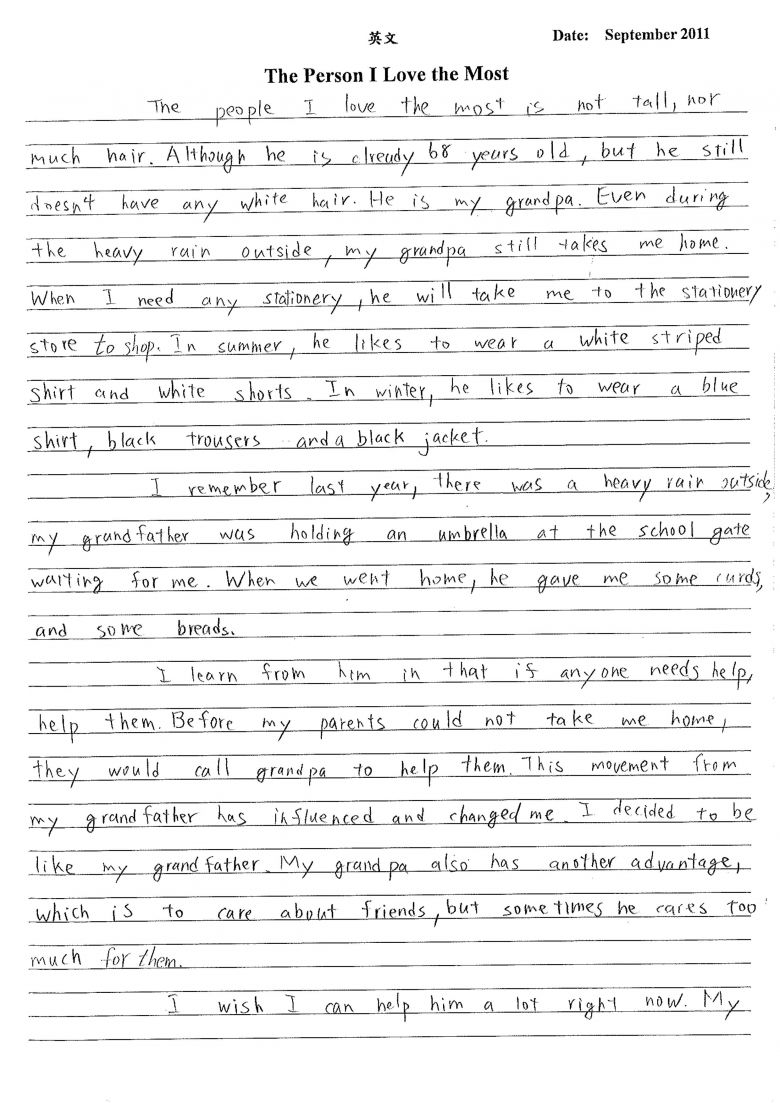 英文
Date: September 2011
The Person I Love the Most
The people I love the most is not tall, nor
much hair. Although he is clready 68 years old, but he still
doesn't have any white hair. He is my grandpa. Even during
the heavy rain outside, my grandpa still takes me home.
When I need any stationery, he will take me to the stationery
store to shop. In summer, he likes to wear a white striped
shirt and white shorts. In winter, he likes to wear a blue
shirt, black trousers and a black jacket.
I remember last year, there was a heavy rain outside,
my grandfather was holding an umbrella at the school gate
waiting for me. When we went home, he gave me some curds,
and some breads.
I learn from him in that if anyone needs help,
help them. Before my parents could not take me home,
they would call grandpa to help them. This movement from
my grandfather has influenced and changed me. I decided to be
like my grandfather. My grandpa also has another advantage,
which is to care about friends, but sometimes he cares too
much for them.
I wish I can help him a lot right now. My